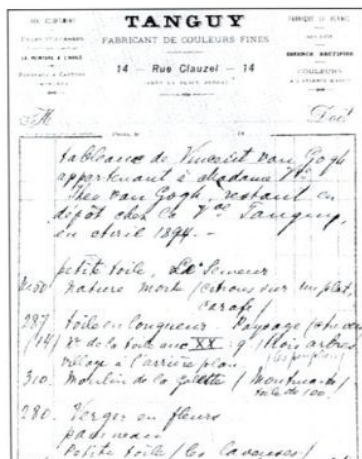 TANGUY
FABRICANT DE COULEURS FINES
14 - Rue Clauzel - 14
ESSENCE RECTIFIÉE
COULEURS
M
Doit
tableaux de Vincent van Gogh
appartenant à Madame Vve
Theo van Gogh, restant en
dépôt chez la Vve Tanguy,
en avril 1894. -
petite toile, Le Semeur
nature morte (citrons sur un plat,
carafe)
287 toile en longueur. Paysage
(14) No de la toile XX : 9 (trois arbres
village à l'arrière plan
310. Moulin de la galette (Montmartre)
toile de
280. Verger en fleurs
panneau
Petite toile (les laveuses)